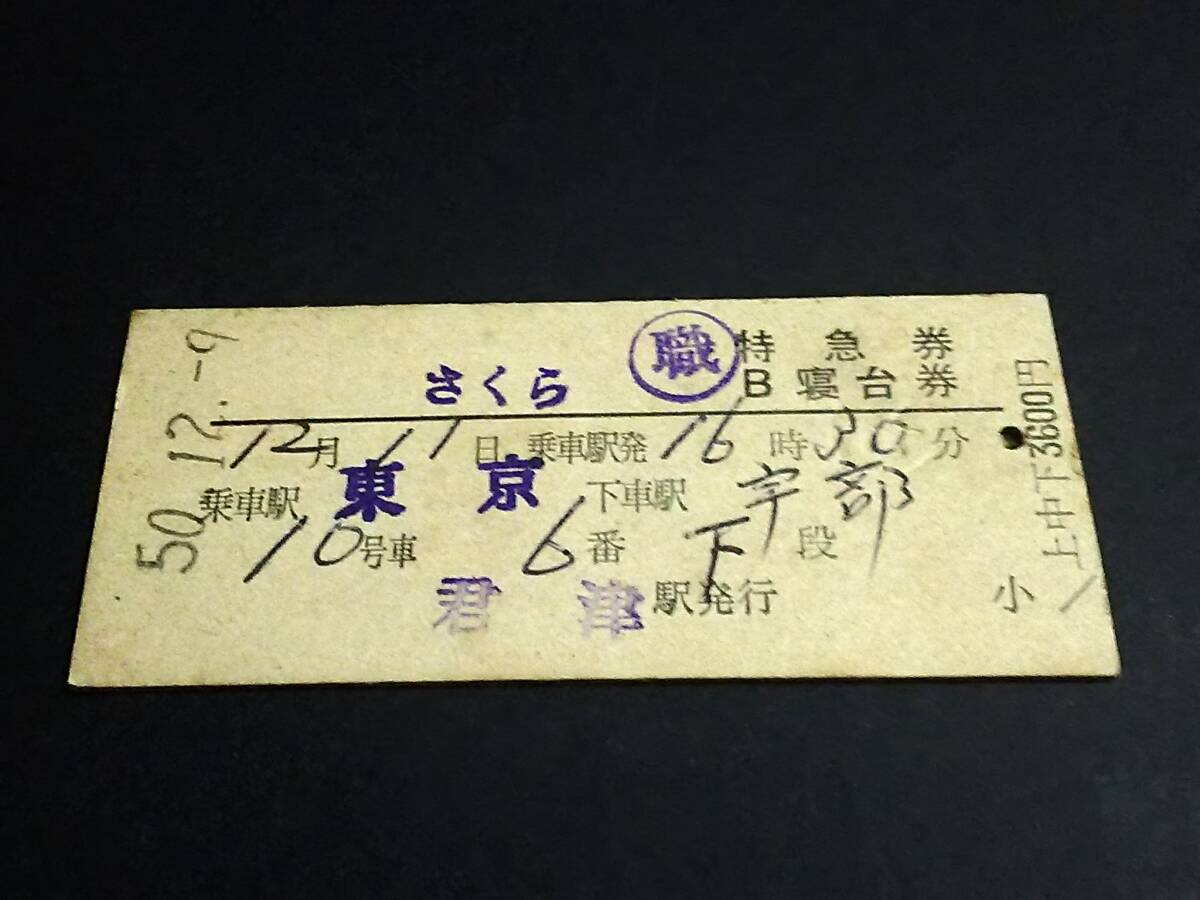 50.12.-9
㊢ 特急券
さくら B寝台券
12月11日 乗車駅発16時30分
乗車駅 東京 下車駅 宇部
10号車 6番 下段
君津駅発行
小
上中下3600円